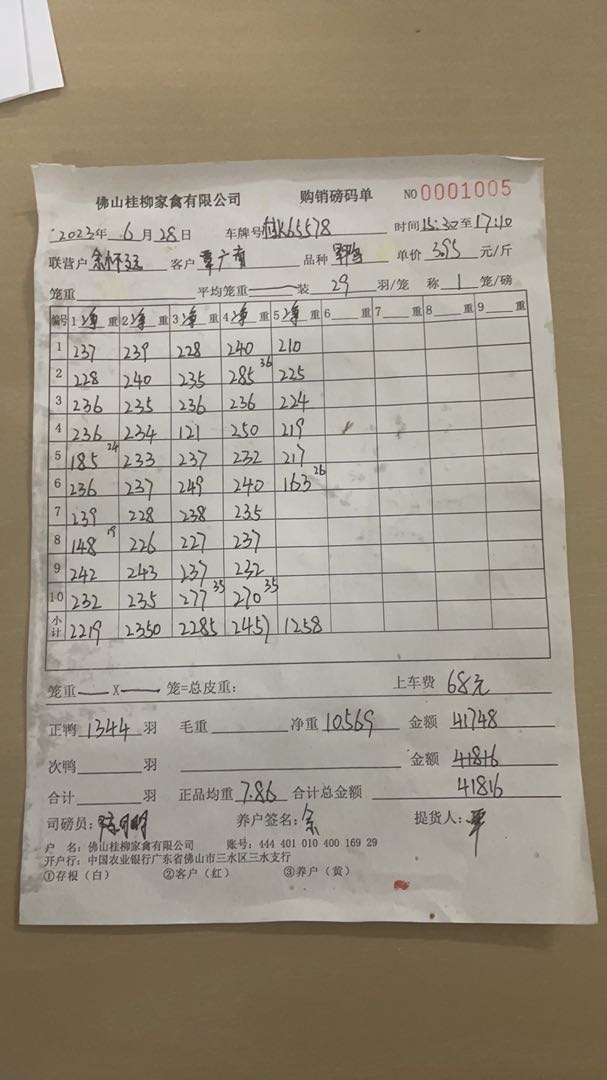 佛山桂柳家禽有限公司 购销磅码单 NO 0001005
2023年 6 月 28 日 车牌号 65578 时间 15:30 至 17:10
联营户 余怀 客户 覃广 品种 单价 3.95 元/斤
笼重 平均笼重 — 装 29 羽/笼 称 1 笼/磅
编号 1 净 重 2 净 重 3 净 重 4 净 重 5 净 重 6 重 7 重 8 重 9 重
1 237 239 228 240 210
2 228 240 235 285 36 225
3 236 235 236 236 224
4 236 234 121 250 219
5 185 24 233 237 232 217
6 236 237 249 240 163 26
7 239 228 238 235
8 148 19 226 227 237
9 242 243 237 232
10 232 235 277 35 270 35
小计 2219 2350 2285 2457 1258
笼重 — X — 笼=总皮重: 上车费 68元
正鸭 1344 羽 毛重 净重 10569 金额 41748
次鸭 羽 金额 41816
合计 羽 正品均重 7.86 合计总金额 41816
司磅员: 养户签名: 余 提货人: 覃
户 名: 佛山桂柳家禽有限公司 账号: 444 401 010 400 169 29
开户行: 中国农业银行广东省佛山市三水区三水支行
①存根(白) ②客户(红) ③养户(黄)